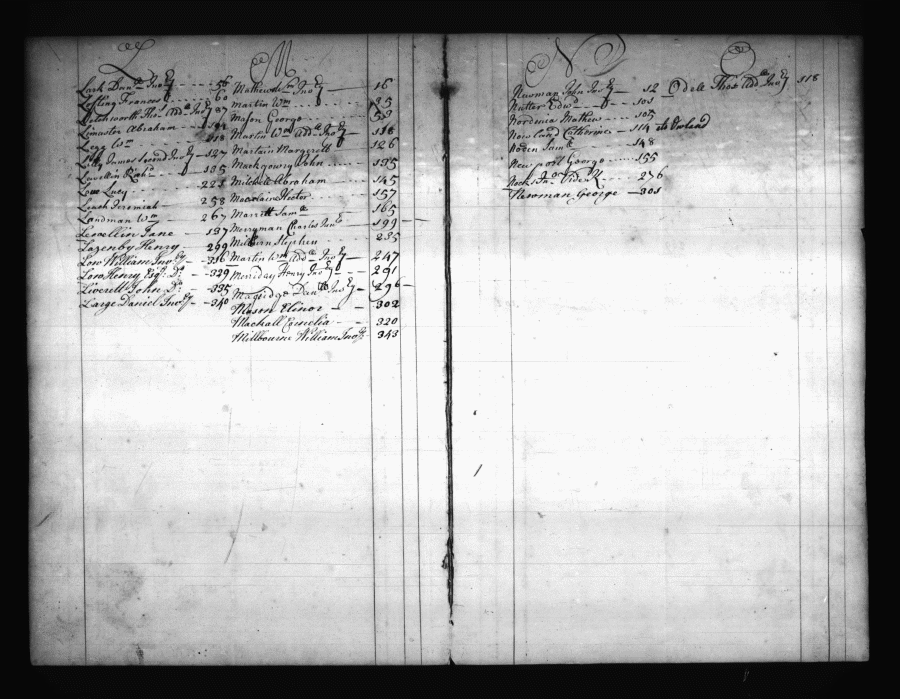 L
Lark Danll Invy 56
Lofling Frances 60
Letchworth Thos Addl Invy 87
Lincaster Abraham
Legg Wm 118
Invy 127
Lavellin Richd 135
Love Lucy 221
Leach Jeremiah 258
Landman Wm 267
Lewellin Jane 137
Lazenby Henry 299
Low William Invy 316
Low Henry Esqr Do 329
Liverett John Do 335
Large Daniel Invy 340
M
Mathews Invy 16
Martin Wm 25
Mason George 53
Martin Wm Addl Invy 118
Martain Margerett 126
Mackgowry John 135
Mitchell Abraham 145
Maclaine Hector 157
Marrett Samll 165
Merryman Charles Invy 199
Milburn Stephen 235
Martin Wm Addl Invy 247
Merriday Henry Invy 291
Magridge Danll Invy 296
Mason Elinor 302
Machall Cornelia 320
Millbourne William Invy 343
N
Newman John Invy 12
Nutter Edwd 101
Nordenia Mathew 105
Nowland Catherine 114
Noden Samll 148
Newport George 155
Nocks Jno Vide K 276
Newman George 301
O
Odele Thos Addl Invy 318